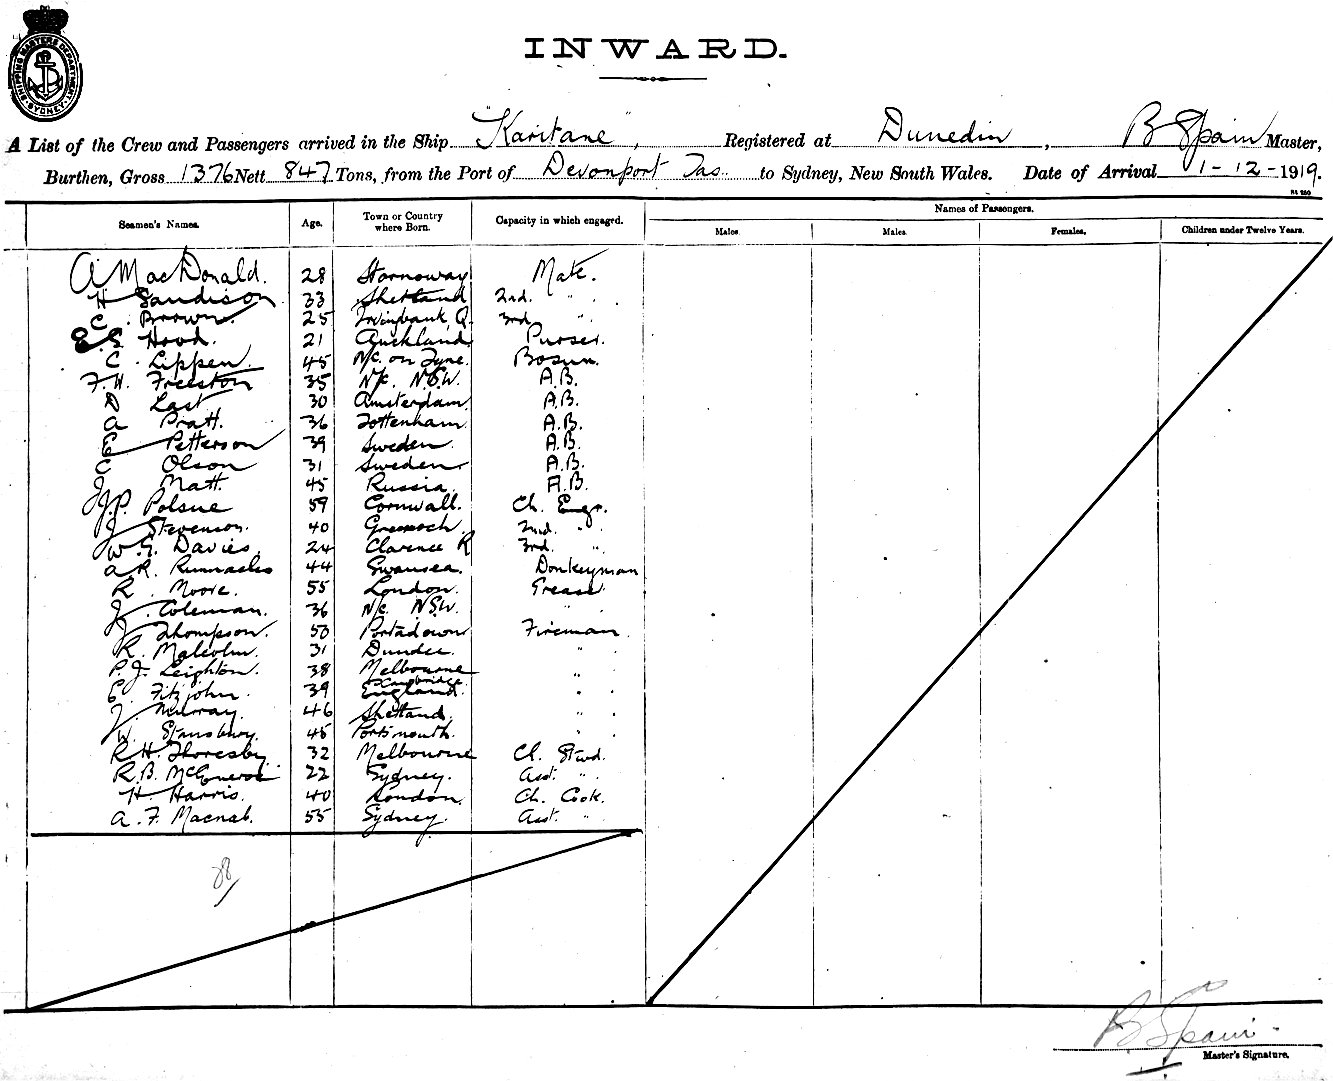 SHIPPING MASTERS DEPARTMENT SYDNEY
INWARD.
A List of the Crew and Passengers arrived in the Ship "Karitane", Registered at Dunedin, B Spain Master,
Burthen, Gross 1376 Nett 847 Tons, from the Port of Devonport Tas. to Sydney, New South Wales. Date of Arrival 1-12-1919.
Names of Passengers.
Seamen's Names. Age. Town or Country where Born. Capacity in which engaged. Males. Males. Females. Children under Twelve Years.
A MacDonald. 28 Stornoway Mate.
H Sandison 33 Shetland 2nd. "
C. Brown. 25 Irvingbank Q. 3rd "
E. S. Hood. 21 Auckland Purser.
C. Lippen. 45 N/c. on Tyne. Bosun.
F. H. Freeston 35 N/c. N.S.W. A.B.
D Last 30 Amsterdam. A.B.
A Pratt. 36 Tottenham. A.B.
E Petterson 39 Sweden. A.B.
C Olson 31 Sweden A.B.
J Matt. 45 Russia. A.B.
J.P. Polsue 59 Cornwall. Ch. Engr.
J Stevenson. 40 Greenock. 2nd. "
W. G. Davies. 24 Clarence R 3rd. "
A R. Runnacles 44 Swansea. Donkeyman
R. Moore. 55 London. Greaser.
J. Coleman. 36 N/c. NSW. "
J Thompson. 50 Portadown Fireman.
R. Malcolm. 31 Dundee. "
P. J. Leighton. 38 Melbourne "
E. Fitzjohn. 39 Cambridge England. "
J. Murray. 46 Shetland. "
W. Stansbury. 45 Portsmouth. "
R H. Thoresby. 32 Melbourne Ch. Stwd.
R. B. 22 Sydney. Asst. "
H Harris. 40 London. Ch. Cook.
A. F. Macnab. 55 Sydney. Asst. "
B. Spain.
Master's Signature.